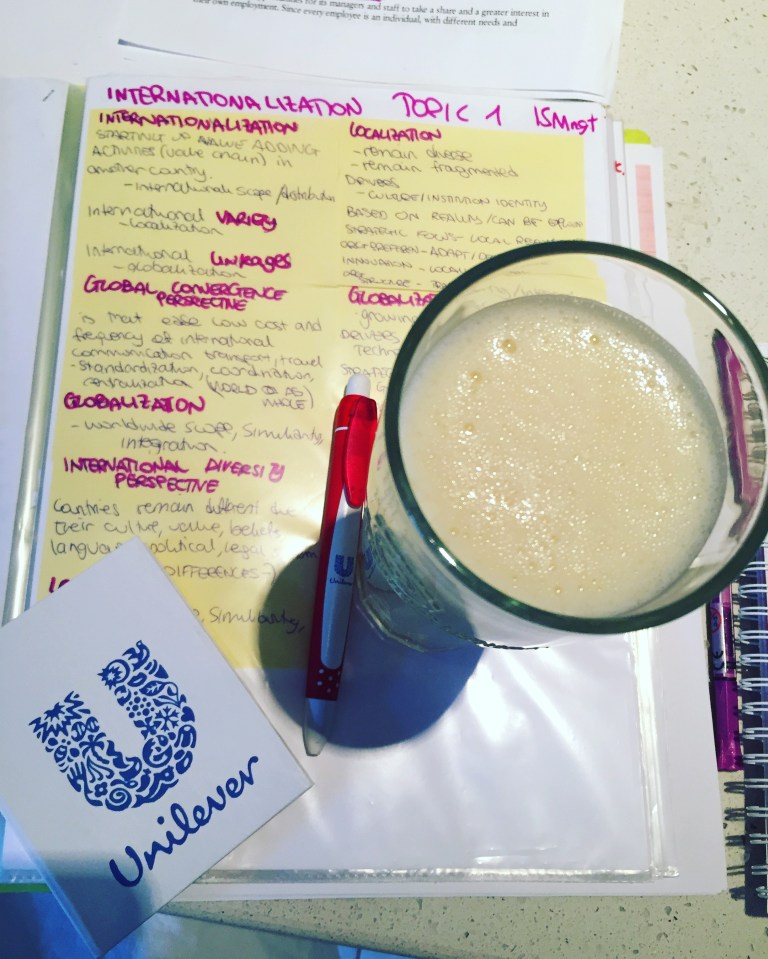 for its managers and staff to take a share and a greater interest in
their own employment. Since every employee is an individual, with different needs and
INTERNATIONALIZATION TOPIC 1 ISMngt
INTERNATIONALIZATION
STARTING UP VALUE ADDING
ACTIVITIES (value chain) in
another country.
- International scope /distribution
International VARIETY
- Localization
International LINKAGES
- globalization
GLOBAL CONVERGENCE
PERSPECTIVE
is that ease low cost and
frequency of international
communication transport, travel
- Standardization, coordination,
centralization (WORLD AS
WHOLE)
GLOBALIZATION
- worldwide scope, Similarity,
integration.
INTERNATIONAL DIVERSITY
PERSPECTIVE
Countries remain different due
their culture, value, beliefs
language, political, legal
DIFFERENCES
Similarity,
LOCALIZATION
- remain diverse
- remain fragmented
DRIVERS
- CULTURE/INSTITUTION IDENTITY
BASED ON REALITY/CAN BE
STRATEGIC FOCUS LOCAL
- ADAPT/
INNOVATION - LOCAL
GLOBALIZ
- growing
DRIVERS
Techn
U
Unilever
U
Unilever